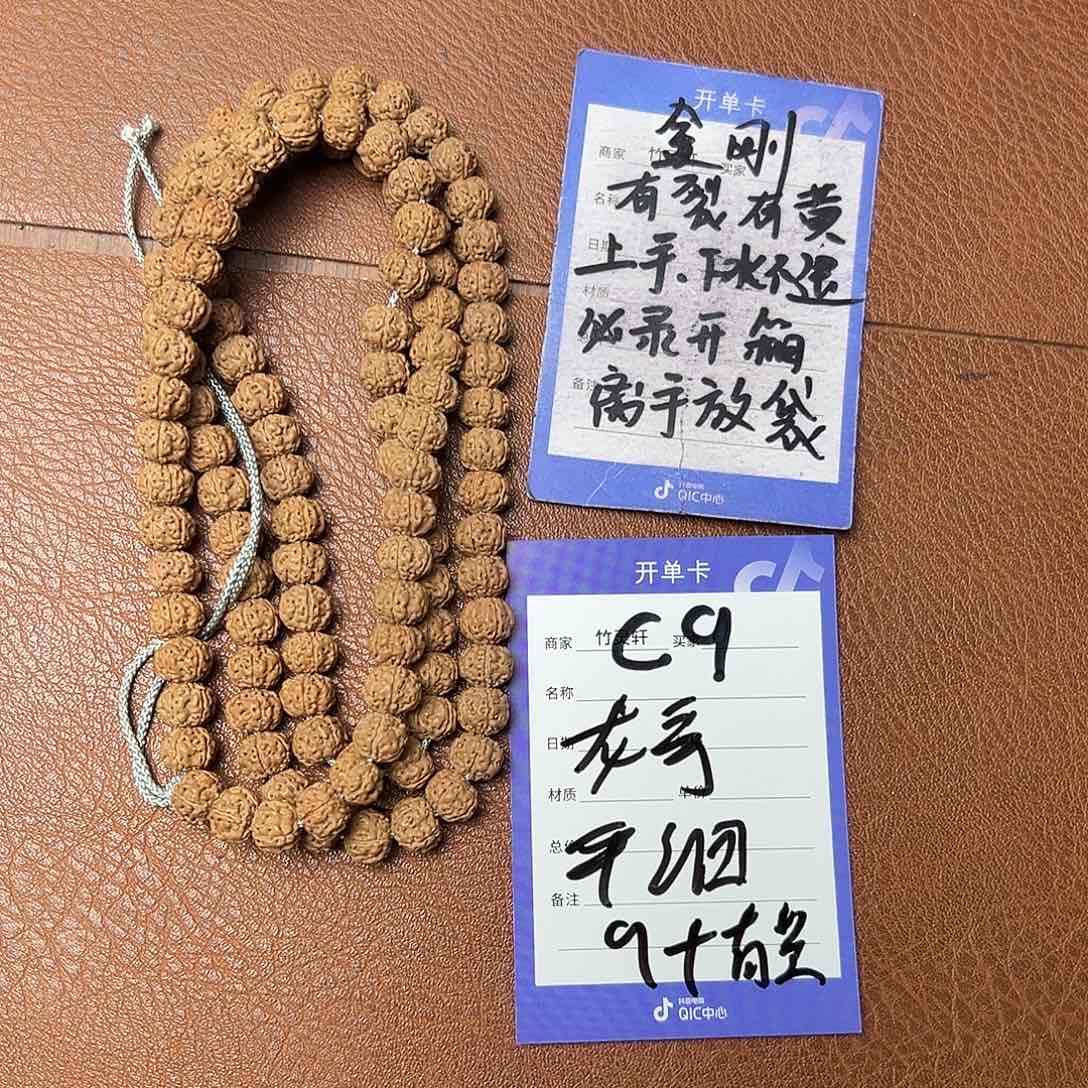 开单卡
金刚
商家
有裂有黄
日期
上手、下水不退
材质
必录开箱
备注
离手放袋
抖音电商
QIC中心
开单卡
C9
商家 竹灵轩 买家
名称
日期
材质 单价
总价
备注
9+有
抖音电商
QIC中心